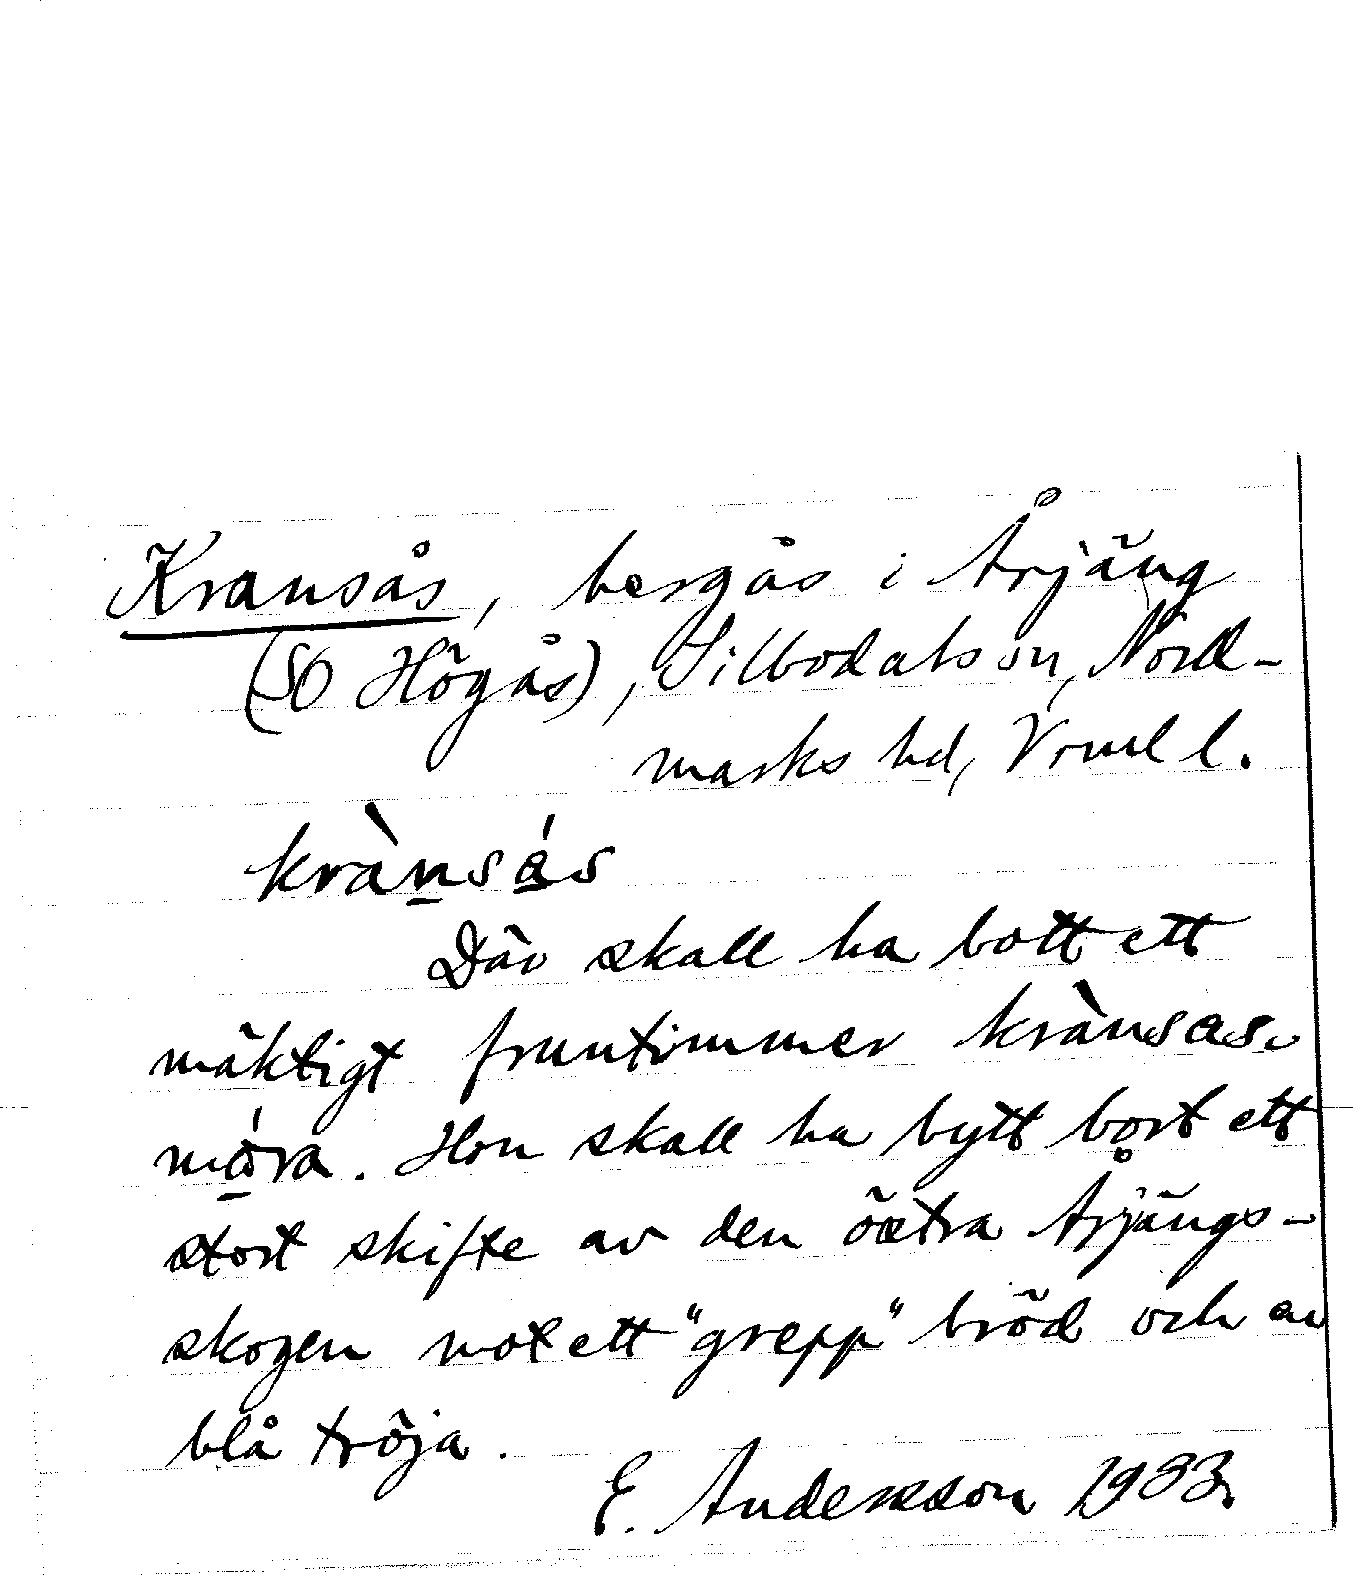 Kransås, bergås i Årjäng
(SO Högås), Silbodals sn, Nord-
marks hd, Vrml l.
krànsás
Där skall ha bott ett
mäktigt fruntimmer krànsas-
måra. Hon skall ha bytt bort ett
stort skifte av den östra Årjängs-
skogen mot ett "grepp" bröd och en
blå tröja.
E. Andersson 1933.